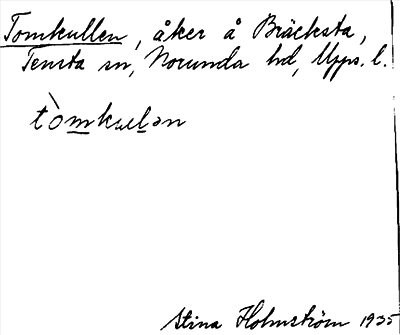 Tomkullen, åker å Bräcksta,
Tensta sn, Norunda hd, Upps. l.
tòmkulən
Stina Holmström 1935